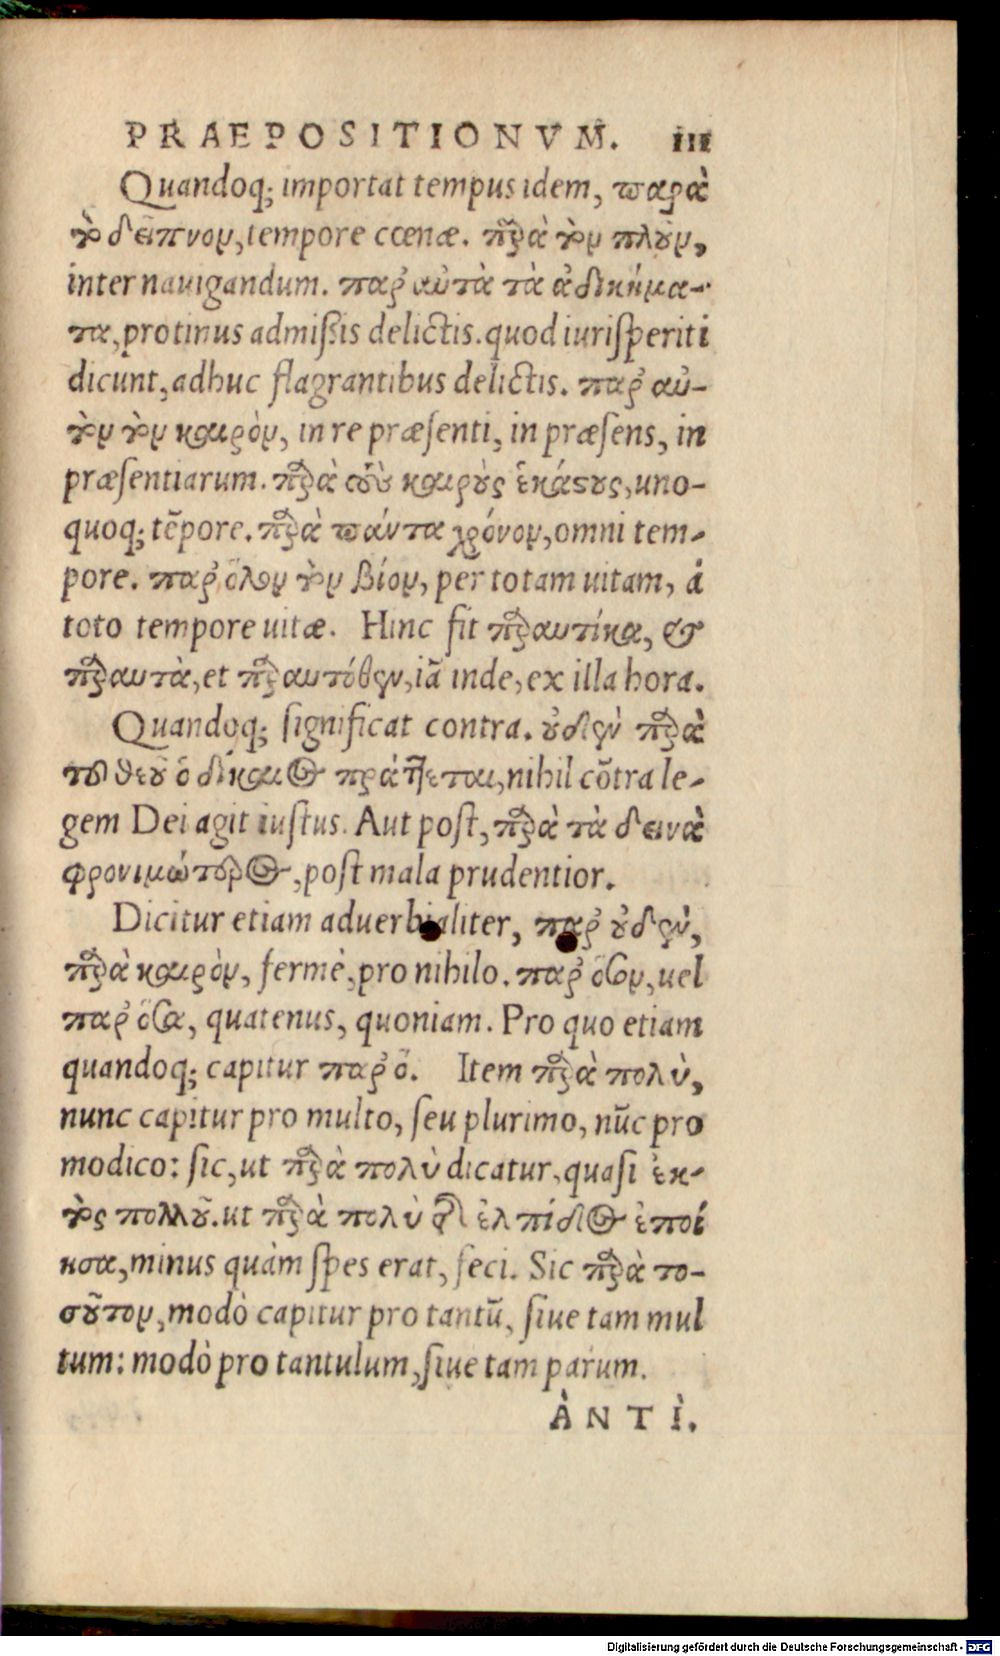 PRAEPOSITIONVM. III
Quandoq; importat tempus idem, παρὰ
τὸ δεῖπνον, tempore cœnæ. παρὰ τὸν πλοῦν,
inter nauigandum. παρ᾽ αὐτὰ τὰ ἀδικήμα-
τα, protinus admißis delictis. quod iurisperiti
dicunt, adhuc flagrantibus delictis. παρ᾽ αὐ-
τὸν τὸν καιρὸν, in re præsenti, in præsens, in
præsentiarum. παρὰ τοὺς καιροὺς ἑκάστους, uno-
quoq; tēpore. παρὰ πάντα χρόνον, omni tem-
pore. παρ᾽ ὅλον τὸν βίον, per totam uitam, à
toto tempore uitæ. Hinc fit παραυτίκα, &
παραυτὰ, et παραυτόθεν, iā inde, ex illa hora.
Quandoq; significat contra. οὐδὲν παρὰ
τοῦ θεοῦ ὁ δίκαιος πράττεται, nihil cōtra le-
gem Dei agit iustus. Aut post, παρὰ τὰ δεινὰ
φρονιμώτερος, post mala prudentior.
Dicitur etiam aduerbialiter, παρ᾽ οὐδὲν,
παρὰ καιρὸν, fermè, pro nihilo. παρ᾽ ὅσον, uel
παρ᾽ ὅσα, quatenus, quoniam. Pro quo etiam
quandoq; capitur παρ᾽ ὅ. Item παρὰ πολὺ,
nunc capitur pro multo, seu plurimo, nūc pro
modico: sic, ut παρὰ πολὺ dicatur, quasi ἐκ-
τὸς πολλοῦ. ut παρὰ πολὺ τῆς ἐλπίδος ἐποί
ησα, minus quàm spes erat, feci. Sic παρὰ το-
σοῦτον, modò capitur pro tantū, siue tam mul
tum: modò pro tantulum, siue tam parum.
ἈΝΤῚ.
Digitalisierung gefördert durch die Deutsche Forschungsgemeinschaft - DFG